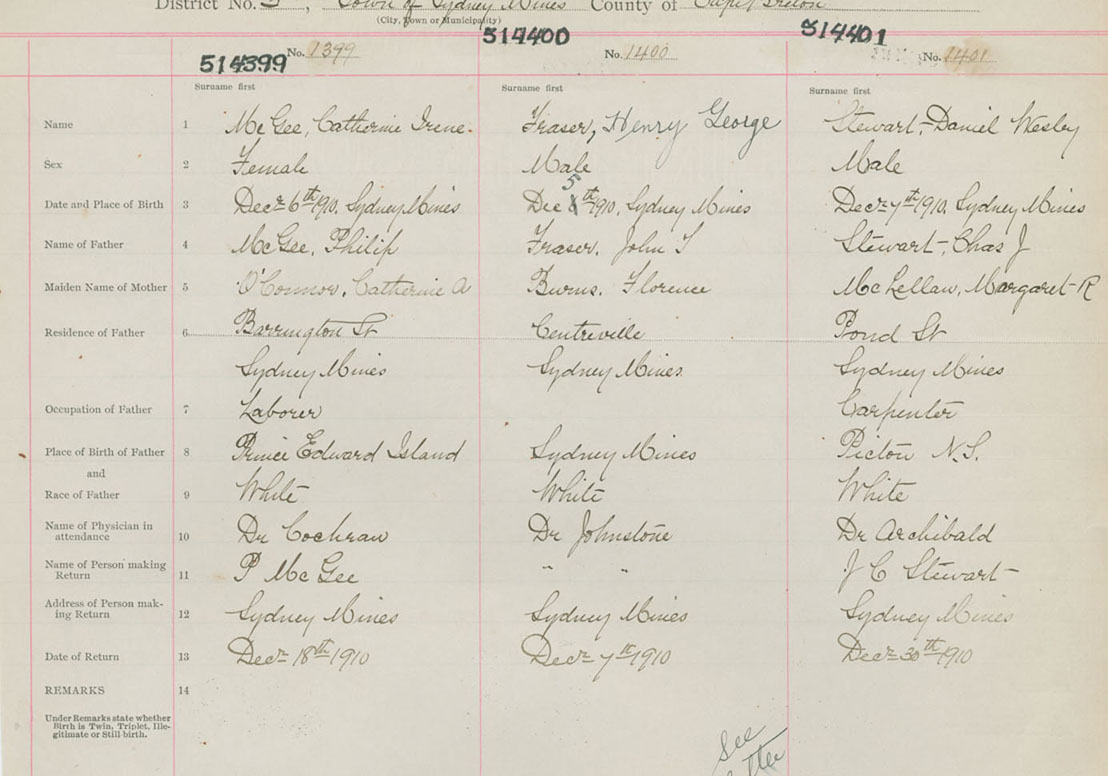 District No. 3, Town of Sydney Mines County of Cape Breton
(City, Town or Municipality)
514399 No. 1399 514400 No. 1400 514401 No. 1401
Surname first Surname first Surname first
Name 1 McGee, Catherine Irene. Fraser, Henry George Stewart, Daniel Wesley
Sex 2 Female Male Male
5
Date and Place of Birth 3 Decr 6th 1910, Sydney Mines Dec th 1910, Sydney Mines Decr 7th 1910, Sydney Mines
Name of Father 4 McGee, Philip Fraser, John T Stewart, Chas J
Maiden Name of Mother 5 O'Connor, Catherine A Burns, Florence McLellan, Margaret R
Residence of Father 6 Barrington St Centreville Pond St
Sydney Mines Sydney Mines Sydney Mines
Occupation of Father 7 Laborer Carpenter
Place of Birth of Father 8 Prince Edward Island Sydney Mines Pictou N.S.
and
Race of Father 9 White White White
Name of Physician in
attendance 10 Dr Cochran Dr Johnstone Dr Archibald
Name of Person making
Return 11 P McGee " " J C Stewart
Address of Person mak-
ing Return 12 Sydney Mines Sydney Mines Sydney Mines
Date of Return 13 Decr 18th 1910 Decr 7th 1910 Decr 30th 1910
REMARKS 14
Under Remarks state whether
Birth is Twin, Triplet, Ille-
gitimate or Still birth.
See